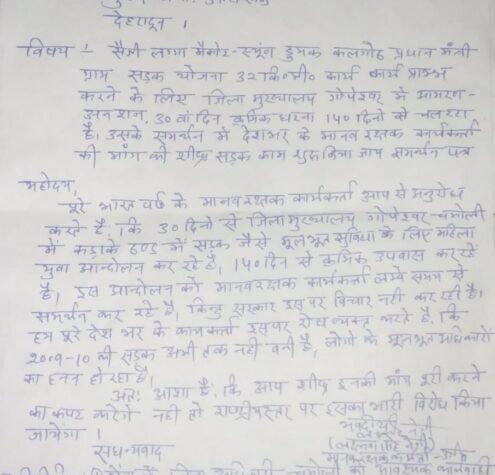 देहरादून ।
विषय :- सैंजी लगा मैकोट - स्यूंण डुमक कलगोठ प्रधान मंत्री
ग्राम सड़क योजना 32 कि०मी० कार्य प्रारम्भ
करने के लिए जिला मुख्यालय गोपेश्वर में आमरण-
अनशन, 30 वां दिन क्रमिक धरना 140 दिनों से चल रहा
है। उसके समर्थन में देशभर के मानव रक्षक कार्यकर्ता
की मांग की शीघ्र सड़क काम शुरू किया जाय समर्थन पत्र
महोदय,
पूरे भारत वर्ष के मानवरक्षक कार्यकर्ता आप से अनुरोध
करते हैं, कि 30 दिनों से जिला मुख्यालय गोपेश्वर चमोली
में कड़ाके ठण्ड में सड़क जैसे मूलभूत सुविधा के लिए महिला
युवा आन्दोलन कर रहे हैं, 140 दिन से क्रमिक उपवास कर रहे
हैं, इस आन्दोलन को मानवरक्षक कार्यकर्ता लम्बे समय से
समर्थन कर रहे हैं, किन्तु सरकार इस पर विचार नहीं कर रही है,
हम पूरे देश भर के कार्यकर्ता इसपर रोष व्यक्त करते हैं, कि
2009-10 की सड़क अभी तक नहीं बनी है, लोगों के मूलभूत अधिकारों
का हनन हो रहा है।
अतः आशा है, कि आप शीघ्र इनकी मांग पूरी करने
का कष्ट करेंगे नहीं तो राष्ट्रीय स्तर पर इसका भारी विरोध किया
जायेगा ।
सधन्यवाद